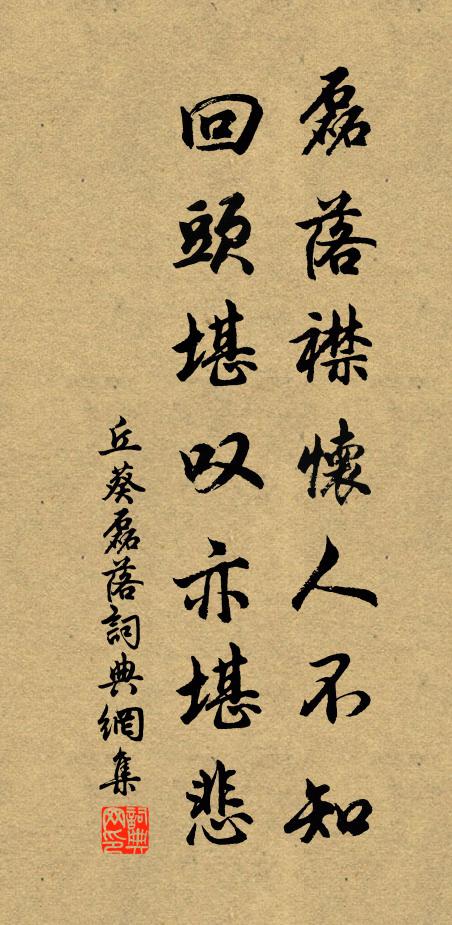 磊落襟懷人不知
回頭堪叹亦堪悲
丘葵磊落詞典網集
詞典网印